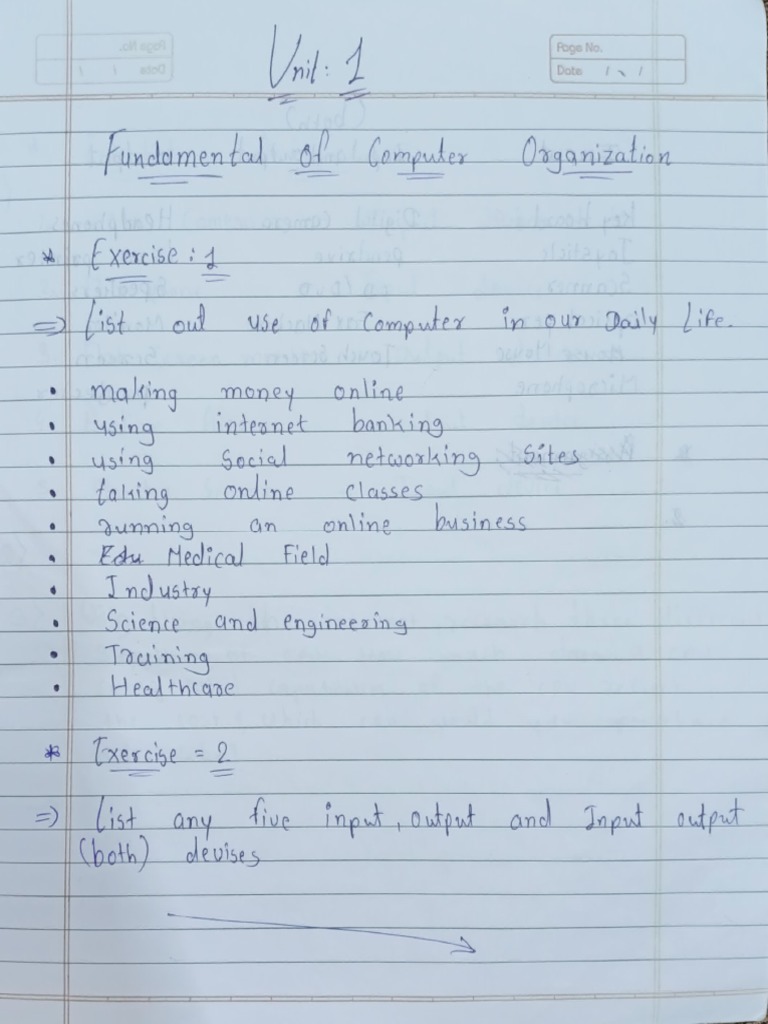 Unit: 1
Page No.
Date / /
Fundamental of Computer Organization
* Exercise: 1
=> List out use of Computer in our Daily Life.
• making money online
• using internet banking
• using Social networking Sites
• taking online classes
• running an online business
• Edu Medical Field
• Industry
• Science and engineering
• Training
• Healthcare
* Exercise = 2
=> List any five input, output and Input output
(both) devises